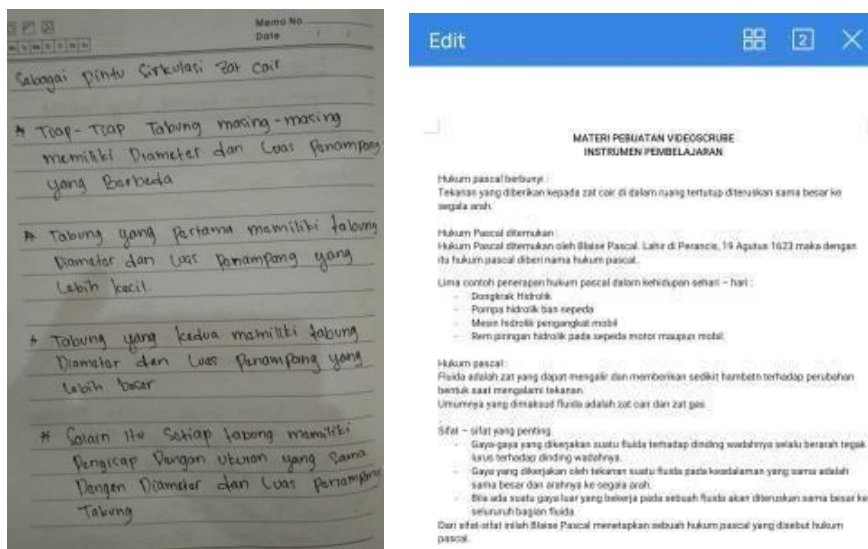 Memo No.
Date
Sabagai pintu Sirkulasi zat cair
Tiap-Tiap Tabung masing-masing
memiliki Diameter dan Luas Penampang
yang Barbeda
Tabung yang Pertama memiliki tabung
Diameter dan Luas Penampang yang
Labih kecil
Tabung yang kedua memiliki tabung
Diameter dan Luas Penampang yang
Labih basar
Salain Itu Satiap tabung mamiliki
Pengisap Dangan Ukuran yang Sama
Dangan Diameter dan Luas Penampang
Tabung
Edit
2
MATERI PEBUATAN VIDEOSCRUBE
INSTRUMEN PEMBELAJARAN
Hukum pascal berbunyi :
Tekanan yang diberikan kepada zat cair di dalam ruang tertutup diteruskan sama besar ke
segala arah.
Hukum Pascal ditemukan :
Hukum Pascal ditemukan oleh Blaise Pascal. Lahir di Perancis, 19 Agutus 1623 maka dengan
itu hukum pascal diberi nama hukum pascal.
Lima contoh penerapan hukum pascal dalam kehidupan sehari – hari :
- Dongkrak Hidrolik
- Pompa hidrolik ban sepeda
- Mesin hidrolik pengangkat mobil
- Rem piringan hidrolik pada sepeda motor maupun mobil.
Hukum pascal :
Fluida adalah zat yang dapat mengalir dan memberikan sedikit hambatn terhadap perubahan
bentuk saat mengalami tekanan.
Umumnya yang dimaksud fluida adalah zat cair dan zat gas.
Sifat – sifat yang penting
- Gaya-gaya yang dikerjakan suatu fluida terhadap dinding wadahnya selalu berarah tegak
lurus terhadap dinding wadahnya.
- Gaya yang dikerjakan oleh tekanan suatu fluida pada keadalaman yang sama adalah
sama besar dan arahnya ke segala arah.
- Bila ada suatu gaya luar yang bekerja pada sebuah fluida akan diteruskan sama besar ke
selururuh bagian fluida.
Dari sifat-sifat inilah Blaise Pascal menetapkan sebuah hukum pascal yang disebut hukum
pascal.